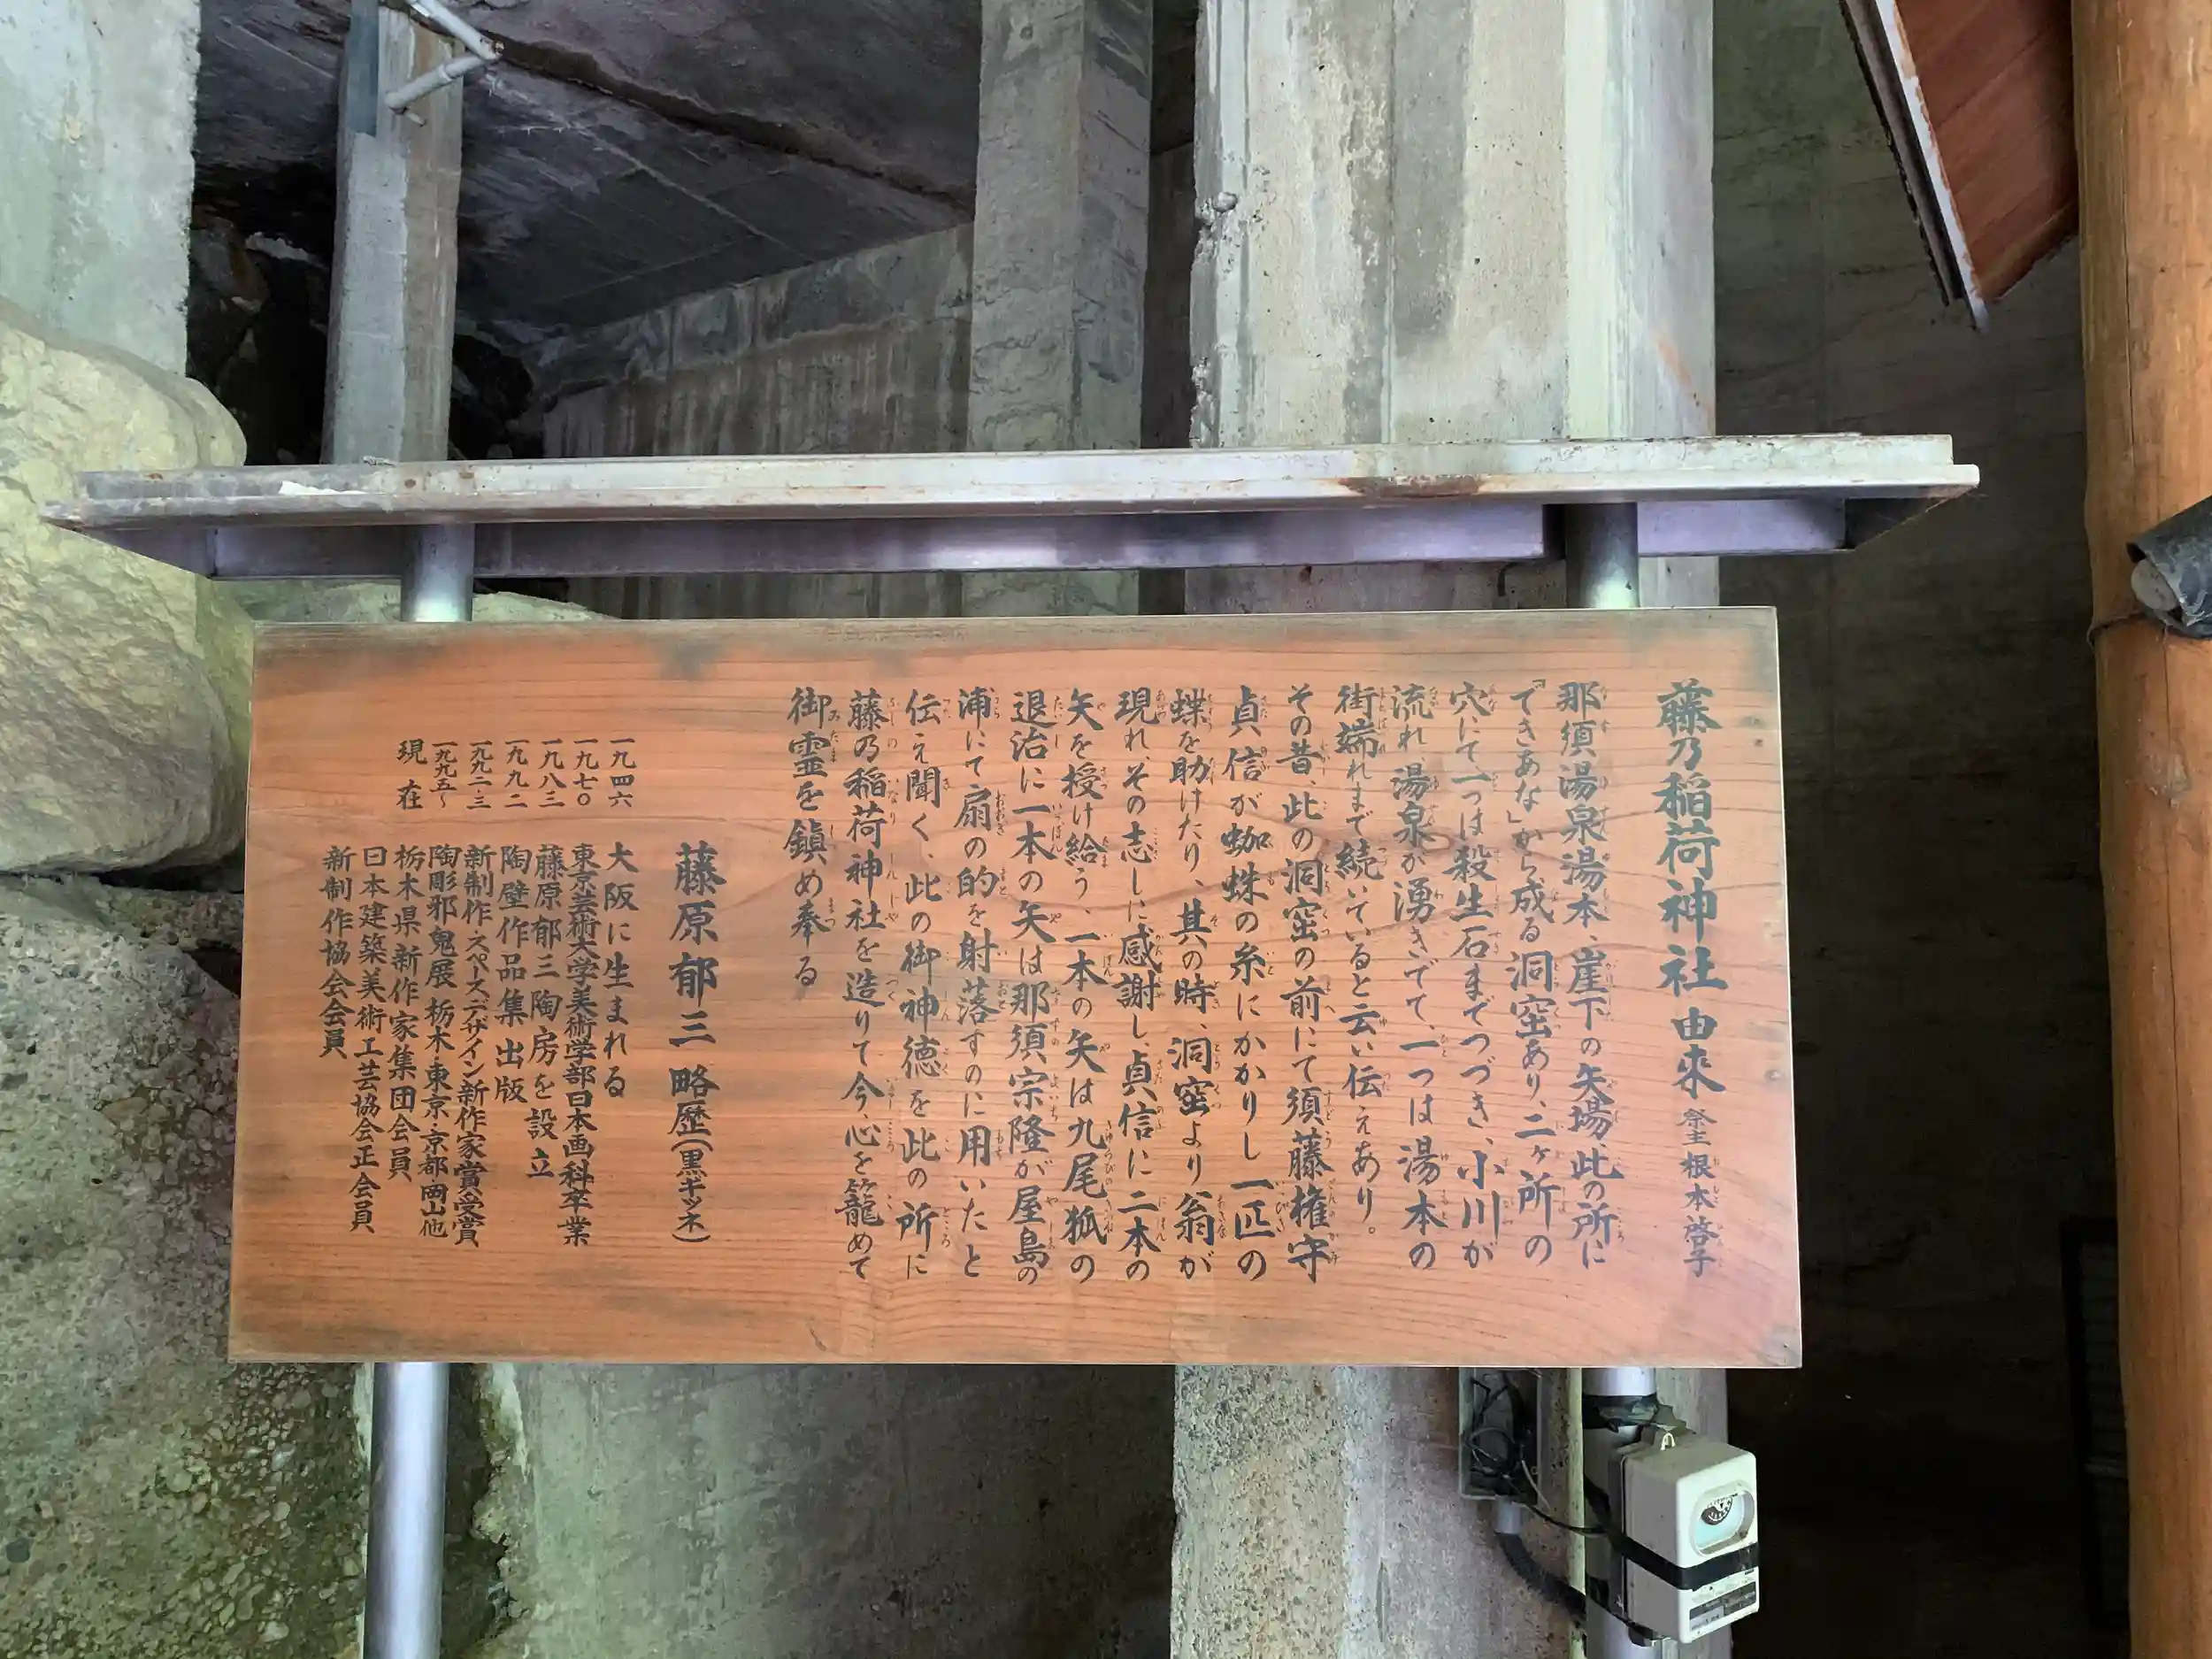 藤乃稲荷神社由来 祭主 根本啓子
那須湯泉湯本、崖下の矢場、此の所に
「できあな」から、成る洞窟あり、二ヶ所の
穴にて一つは殺生石までつづき、小川が
流れ、湯泉が湧きでて、一つは湯本の
街端れまで、続いていると云い伝えあり。
その昔、此の洞窟の前にて須藤権守
貞信が蜘蛛の糸にかかりし一匹の
蝶を助けたり、其の時、洞窟より翁が
現れ、その志しに感謝し、貞信に二本の
矢を授け給う、一本の矢は九尾狐の
退治に一本の矢は那須宗隆が屋島の
浦にて扇の的を射落すのに用いたと
伝え聞く、此の御神徳を此の所に
藤乃稲荷神社を造りて今、心を籠めて
御霊を鎮め奉る
藤原郁三 略歴(黒ギツネ)
一九四六 大阪に生まれる
一九七〇 東京芸術大学美術学部日本画科卒業
一九八三 藤原郁三陶房を設立
一九九二 陶壁作品集出版
一九九二・三 新制作スペースデザイン新作家賞受賞
一九九五〜 陶彫邪鬼展 栃木・東京・京都・岡山他
現在 栃木県新作家集団会員
日本建築美術工芸協会正会員
新制作協会会員